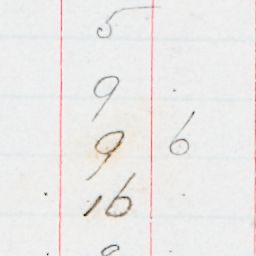 5
9
9 6
16